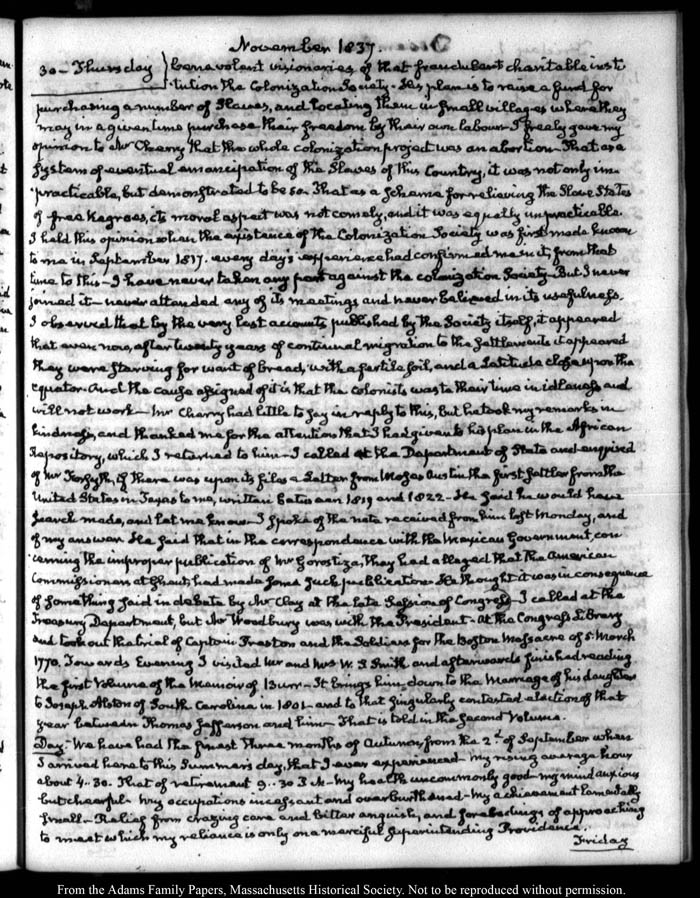 November 1837.
30 - Thursday } benevolent visionaries of that fraudulent charitable insti
tution the Colonization Society. His plan is to raise a fund for
purchasing a number of Slaves, and locating them in small villages where they
may in a given time purchase their freedom by their own labour. I freely gave my
opinion to Mr Cherry that the whole colonization project was an abortion. That as a
system of eventual emancipation of the Slaves of this Country, it was not only im-
practicable, but demonstrated to be so. That as a scheme for relieving the Slave States
of free Negroes, its moral aspect was not comely, and it was equally unpracticable.
I held this opinion when the existence of the Colonization Society was first made known
to me in September 1817. every day's experience had confirmed me in it from that
time to this - I have never taken any part against the colonization Society - But I never
joined it - never attended any of its meetings and never believed in its usefulness.
I observed that by the very last accounts published by the Society itself, it appeared
that even now, after twenty years of continual migration to the Settlements it appeared
they were starving for want of bread, with a fertile soil, and a Latitude close upon the
equator. And the cause assigned of it is that the colonists waste their time in idleness and
will not work - Mr Cherry had little to say in reply to this, but he took my remarks in
kindness, and thanked me for the attention that I had given to his plan in the African
Repository, which I returned to him - I called at the Department of State and enquired
of Mr Forsyth, if there was upon its files a Letter from Moses Austin the first settler from the
United States in Texas to me, written between 1819 and 1822 - He said he would have
search made, and let me know - I spoke of the note received from him last Monday, and
of my answer. He said that in the correspondence with the Mexican Government, con
cerning the improper publication of Mr Gorostiza, they had alleged that the American
Commissioners at Ghent, had made some such publication. He thought it was in consequence
of something said in debate by Mr Clay at the late Session of Congress - I called at the
Treasury Department, but Mr Woodbury was with the President - At the Congress Library
and took out the trial of Captain Preston and the Soldiers for the Boston Massacre of 5. March
1770. Towards Evening I visited Mr and Mrs W. S. Smith and afterwards finished reading
the first Volume of the Memoir of Burr - It brings him down to the Marriage of his daughter
to Joseph Alston of South Carolina in 1801 - and to that singularly contested election of that
year between Thomas Jefferson and him - That is told in the Second Volume.
Day: We have had the finest three months of Autumn, from the 2.d of September when
I arrived here to this Summer's day, that I ever experienced - My rising average hour
about 4..30. That of retirement 9..30 - My health uncommonly good - my mind anxious
but cheerful - My occupations incessant and overburthened - My achievement lamentably
small - Relief from crazing care and bitter anguish, and forebodings of approaching
to meet which my reliance is only on a merciful superintending Providence.
Friday
From the Adams Family Papers, Massachusetts Historical Society. Not to be reproduced without permission.